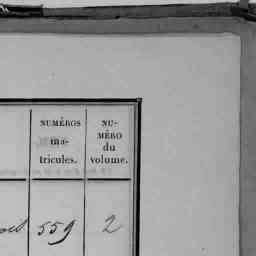 NUMÉROS
ma-
tricules.
NU-
MÉRO
du
volume.
559
2